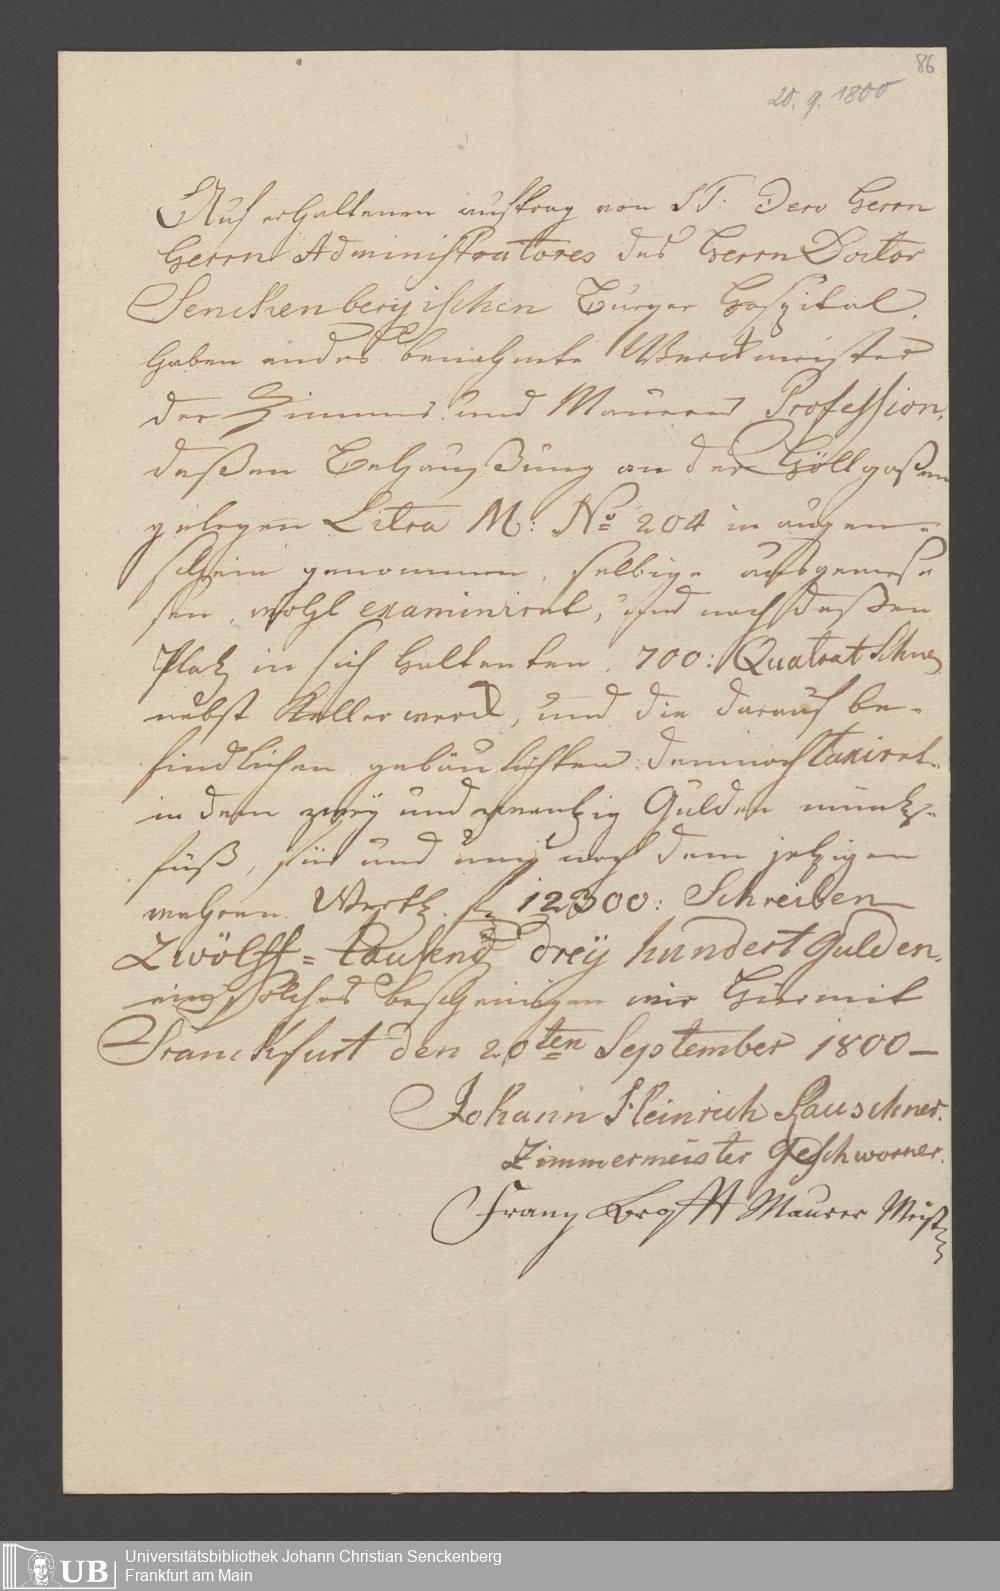 86
20. 9. 1800
Auf erhaltenen auftrag von ST: Dero Herrn
Herrn Administratores des Herrn Doctor
Senckenbergischen Bürger Hospital.
haben endes benahmte Werckmeister
der Zimmer und Maurer Profession,
deßen Behaußung an der Höllgaßen
gelegen Litra M: No 204 in augen=
schein genommen, selbige ausgemeße
sen, wohl examiniret, und nach deßen
Platz in sich haltenten 700: Quatrat Schue,
nebst Kellerwerck, und die darauf be-
findlichen gebäulichkten demnach taxiret.
in dem zwey und zwantzig Gulden müntz=
füß, für und um nach dem jetzigen
wahren Werth. f 12300: Schreiben
Zwölff=tausend drey hundert Gulden,
ein solches bescheinigen wir Hiermit
Franckfurt den 20ten September 1800
Johann Heinrich Rauschner.
Zimmermeister Geschworner.
Franz Maurer Meist
Universitätsbibliothek Johann Christian Senckenberg
Frankfurt am Main
UB